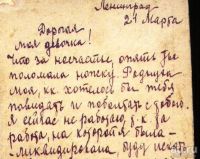 Ленинград
21 Марта
Дорогая
моя девочка!
Что за несчастье, опять ты
поломала ножку. Родную
моя, как хотелось бы тебя
повидать и поболтать с тобой.
Я сейчас не работаю, т.к. за
работа, на которой я была -
ликвидирована, буду искать